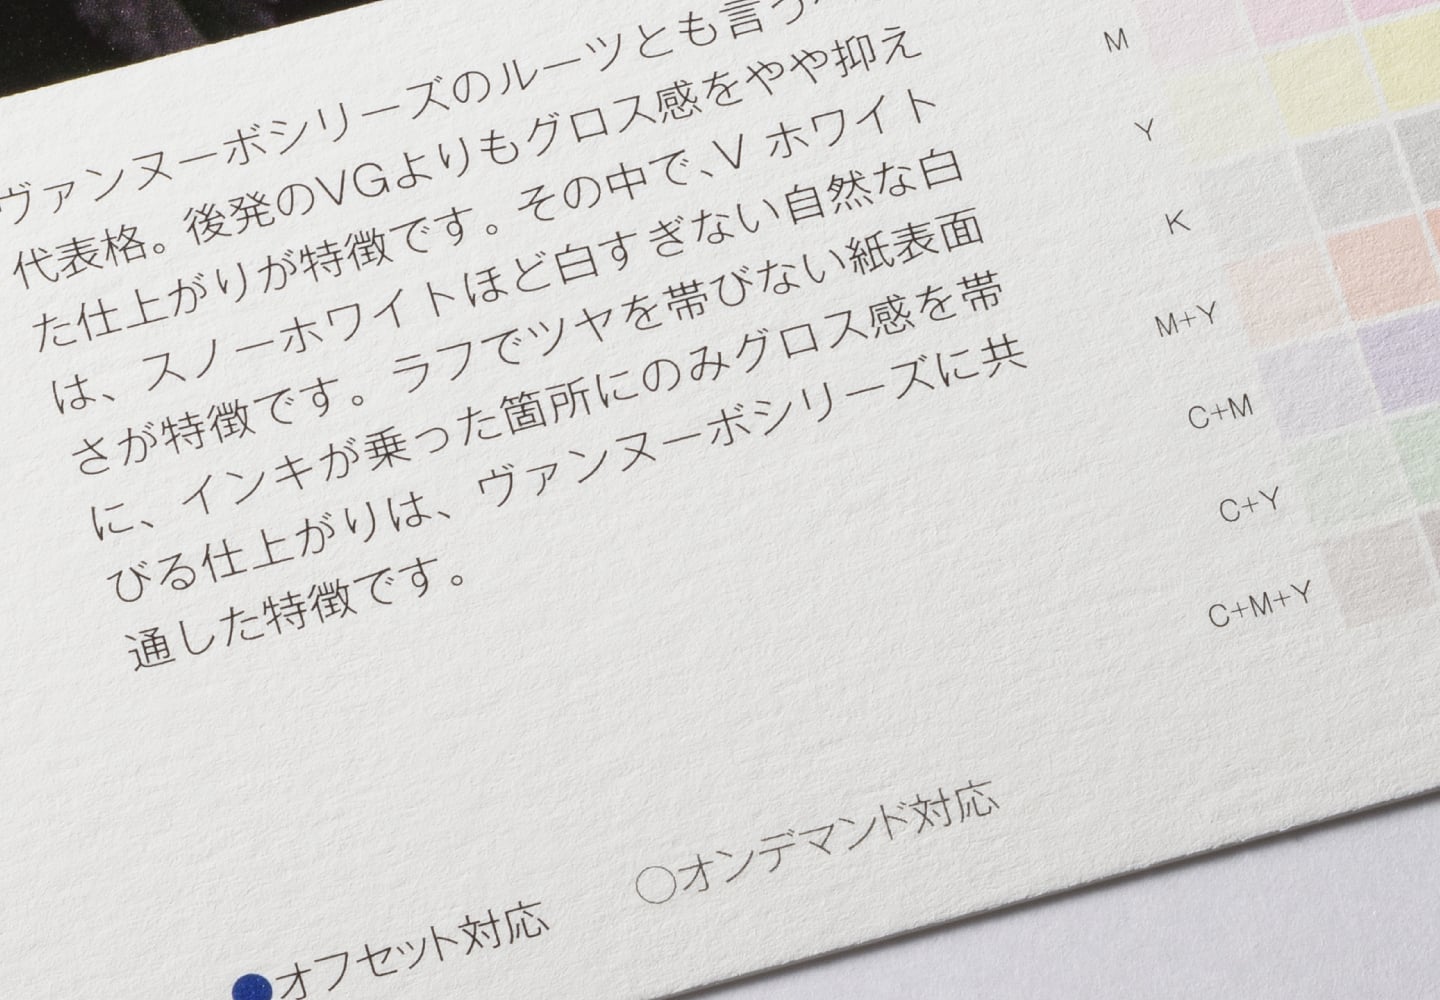 ヴァンヌーボシリーズのルーツとも言う
代表格。後発のVGよりもグロス感をやや抑え
た仕上がりが特徴です。その中で、V ホワイト
は、スノーホワイトほど白すぎない自然な白
さが特徴です。ラフでツヤを帯びない紙表面
に、インキが乗った箇所にのみグロス感を帯
びる仕上がりは、ヴァンヌーボシリーズに共
通した特徴です。
M
Y
K
M+Y
C+M
C+Y
C+M+Y
●オフセット対応
○オンデマンド対応